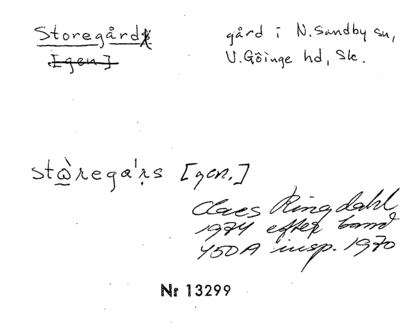 Storegård
gård i N. Sandby sn,
[gen]
V. Göinge hd, Sk.
stọ̀regá'ṛs [gen.]
Claes Ringdahl
1974 efter band
450A insp. 1970
Nr 13299